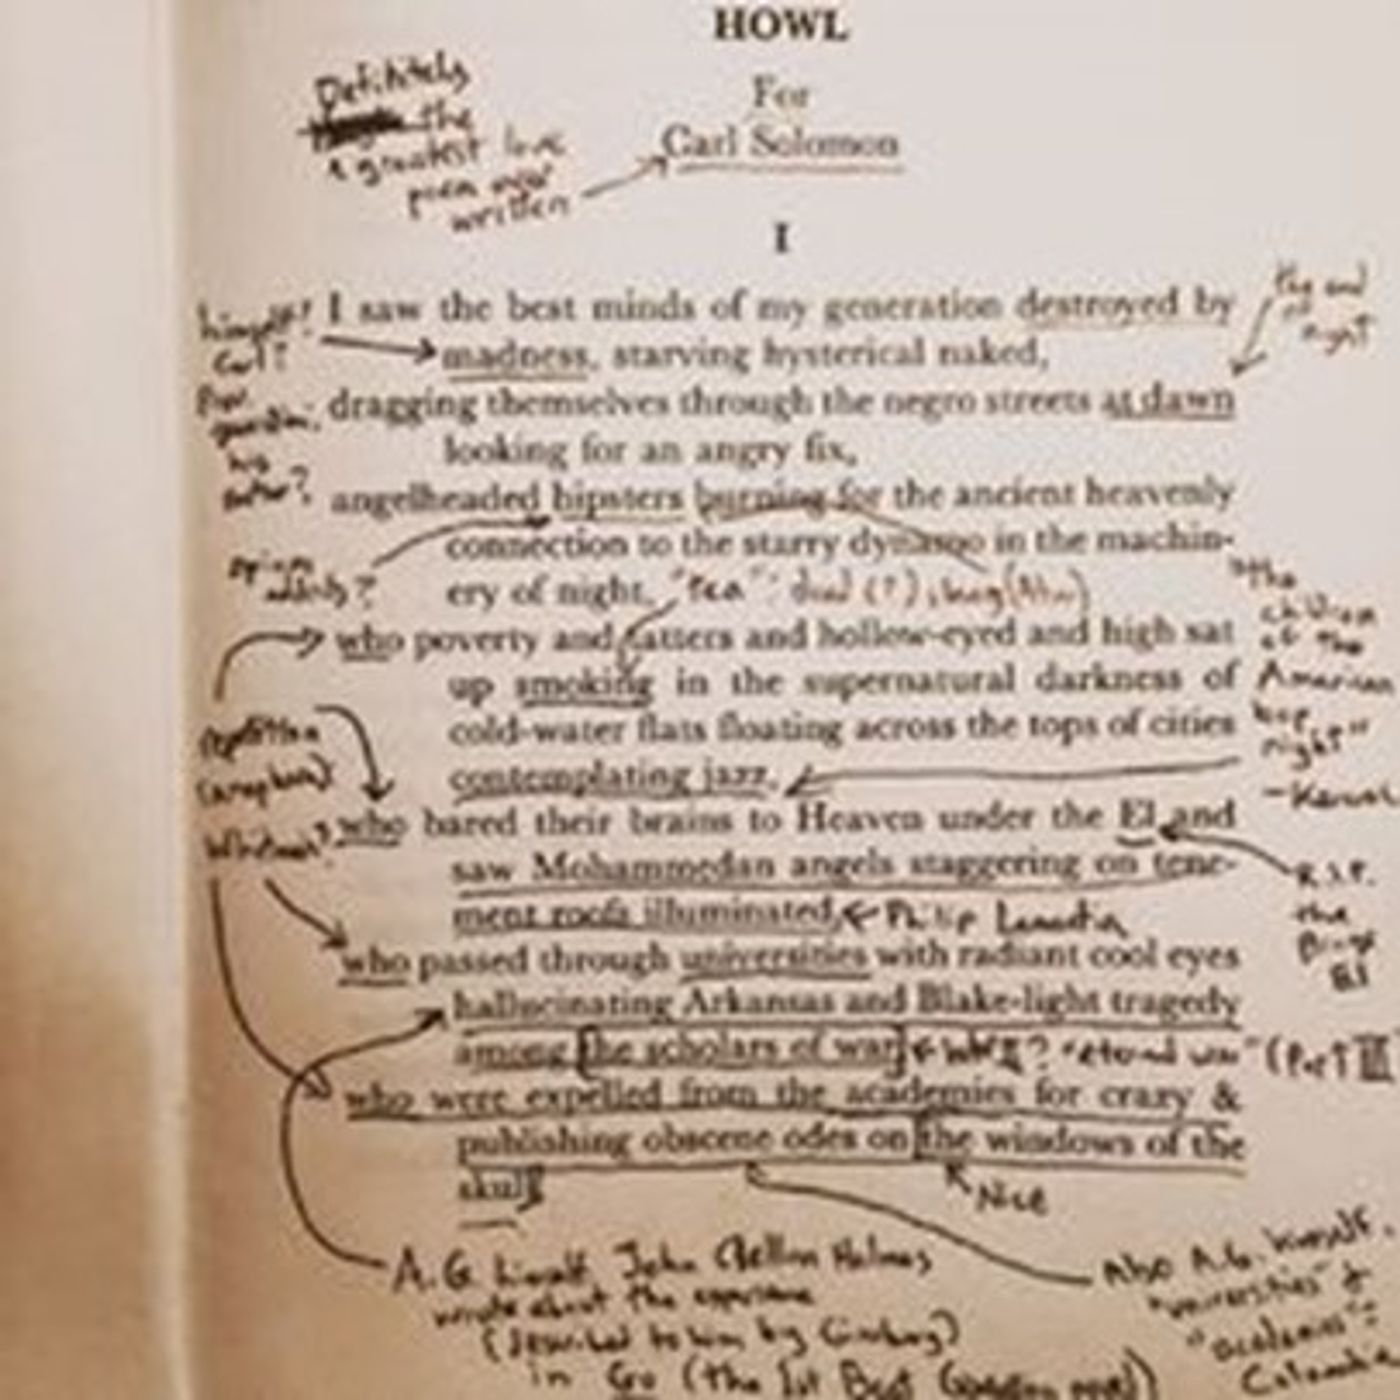 HOWL
For
Carl Solomon
Definitely
the
greatest love
poem ever
written
I
himself?
Carl?
I saw the best minds of my generation destroyed by
the end
of
night
madness, starving hysterical naked,
dragging themselves through the negro streets at dawn
his
mother?
looking for an angry fix,
angelheaded hipsters burning for the ancient heavenly
connection to the starry dynamo in the machin-
opium
addicts?
ery of night,
"Tea"
who poverty and tatters and hollow-eyed and high sat
"the
children
of the
American
bop
night"
-Kerouac
up smoking in the supernatural darkness of
cold-water flats floating across the tops of cities
contemplating jazz,
repetition
(anaphora)
Whitman?
who bared their brains to Heaven under the El and
R.I.P.
the
Bronx
El
saw Mohammedan angels staggering on tene-
ment roofs illuminated,
← Philip Lamantia
who passed through universities with radiant cool eyes
hallucinating Arkansas and Blake-light tragedy
among the scholars of war,
? "eternal war" (Part III
who were expelled from the academies for crazy &
publishing obscene odes on the windows of the
skull,
Nice
A.G. himself. John Clellon Holmes
wrote about the experience
(described to him by Ginsberg)
in Go (the 1st Beat Generation novel)
Also A.G. himself.
"universities" &
"academies":
Columbia